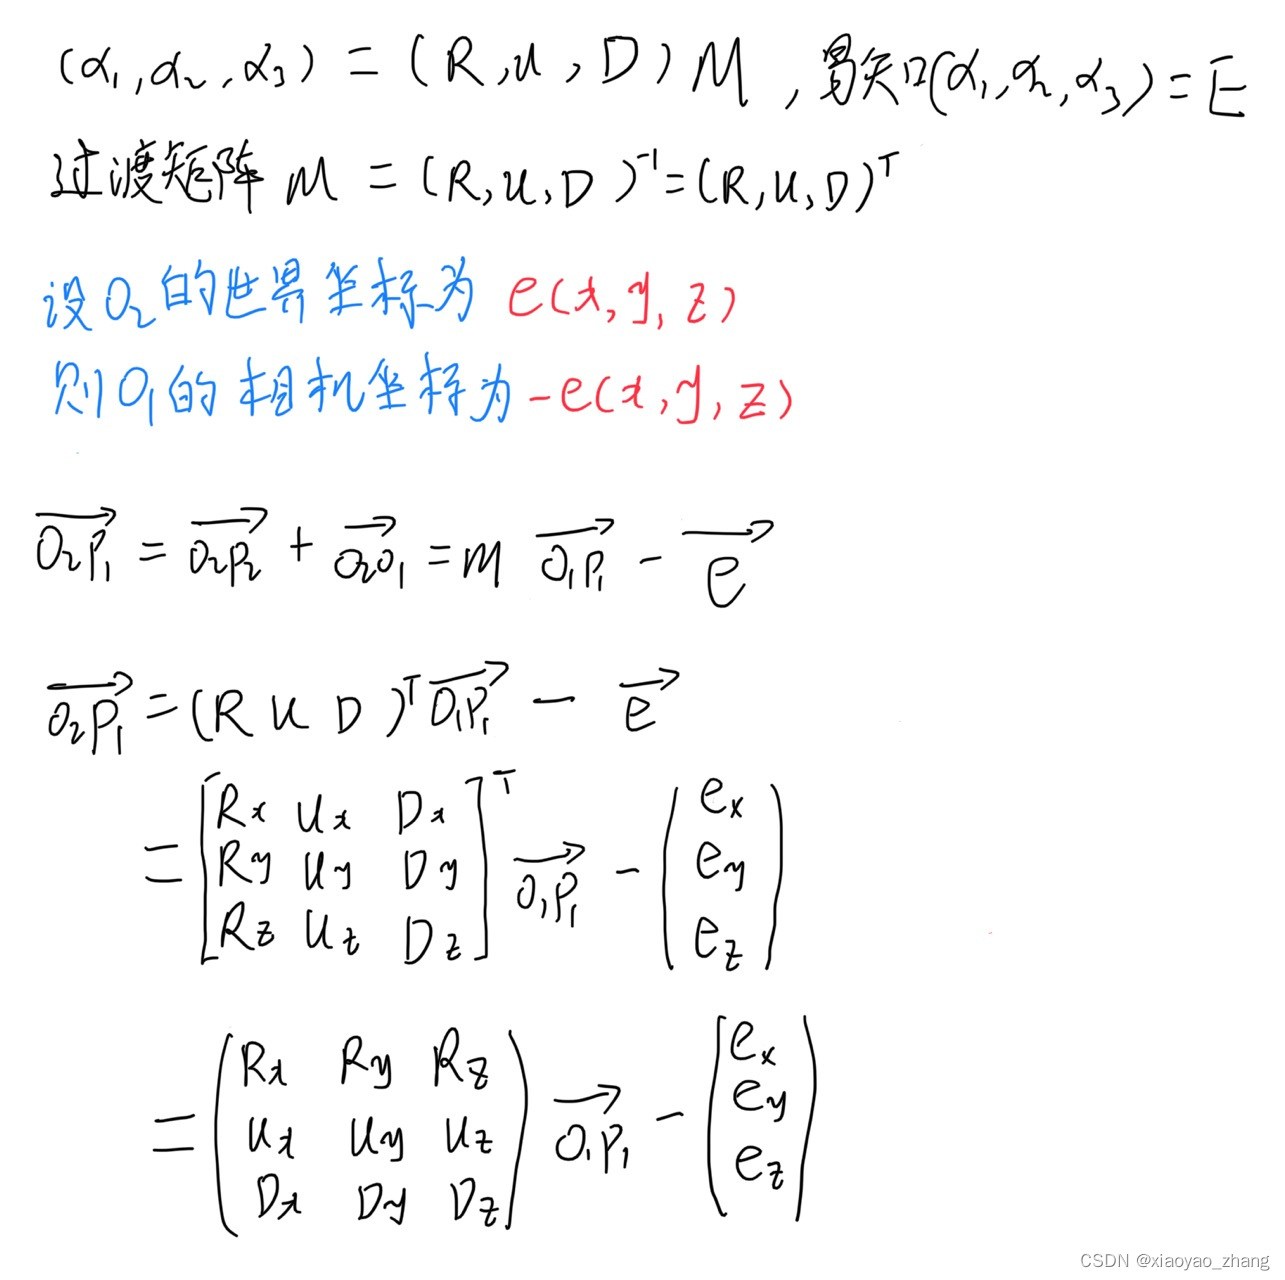 (α₁,α₂,α₃) = (R,U,D)M , 易知(α₁,α₂,α₃)=E
过渡矩阵 M = (R,U,D)⁻¹=(R,U,D)ᵀ
设O₂的世界坐标为 e(x,y,z)
则O₁的相机坐标为-e(x,y,z)
O₂P₁ = O₂P₂ + O₂O₁ = M O₁P₁ - e
O₂P₁ = (R U D)ᵀ O₁P₁ - e
= [Rx Ux Dx
Ry Uy Dy
Rz Uz Dz]ᵀ O₁P₁ - (ex
ey
ez)
= (Rx Ry Rz
Ux Uy Uz
Dx Dy Dz) O₁P₁ - (ex
ey
ez)
CSDN @xiaoyao_zhang